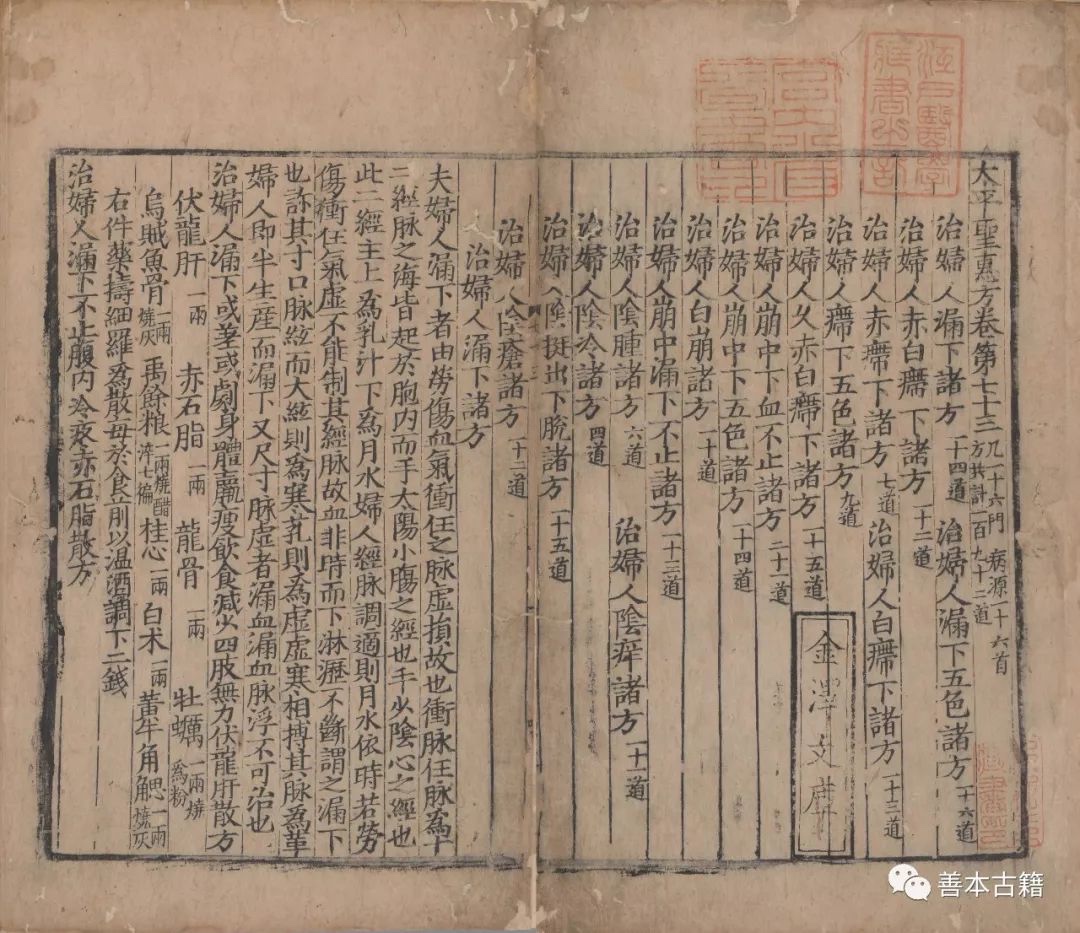 太平聖惠方卷第七十三 凡一十六門 病源一十六首
方共計一百九十二道
治婦人漏下諸方 一十四道 治婦人漏下五色諸方 一十六道
治婦人赤白癴下諸方 一十二道
治婦人赤癴下諸方 七道 治婦人白癴下諸方 一十三道
治婦人癴下五色諸方 九道
治婦人久赤白癴下諸方 一十五道
治婦人崩中下血不止諸方 二十一道
治婦人崩中下五色諸方 一十四道
治婦人白崩諸方 一十道
治婦人崩中漏下不止諸方 一十三道
治婦人陰腫諸方 六道 治婦人陰痒諸方 一十一道
治婦人陰冷諸方 四道
治婦人陰挺出下脫諸方 一十五道
金澤文庫
治婦人陰瘡諸方 一十二道
治婦人漏下諸方
夫婦人漏下者由勞傷血氣衝任之脉虛損故也衝脉任脉為十
二經脉之海皆起於胞內而手太陽小腸之經也手少陰心之經也
此二經主上為乳汁下為月水婦人經脉調適則月水依時若勞
傷衝任氣虛不能制其經脉故血非時而下淋瀝不斷謂之漏下
也診其寸口脉絃而大絃則為寒乳則為虛虛寒相搏其脉為革
婦人即半生産而漏下又尺寸脉虛者漏血漏血脉浮不可治也
治婦人漏下或差或劇身體羸瘦飲食減少四肢無力伏龍肝散方
伏龍肝 一兩 赤石脂 一兩 龍骨 一兩 牡蠣 一兩燒為粉
烏賊魚骨 一兩燒灰 禹餘粮 一兩燒醋淬七徧 桂心 一兩 白术 一兩 黃牛角䚡 一兩燒灰
右件藥擣細羅為散每於食前以温酒調下二錢
治婦人漏下不止腹內冷疼赤石脂散方
江戶醫學藏書之記
善本古籍